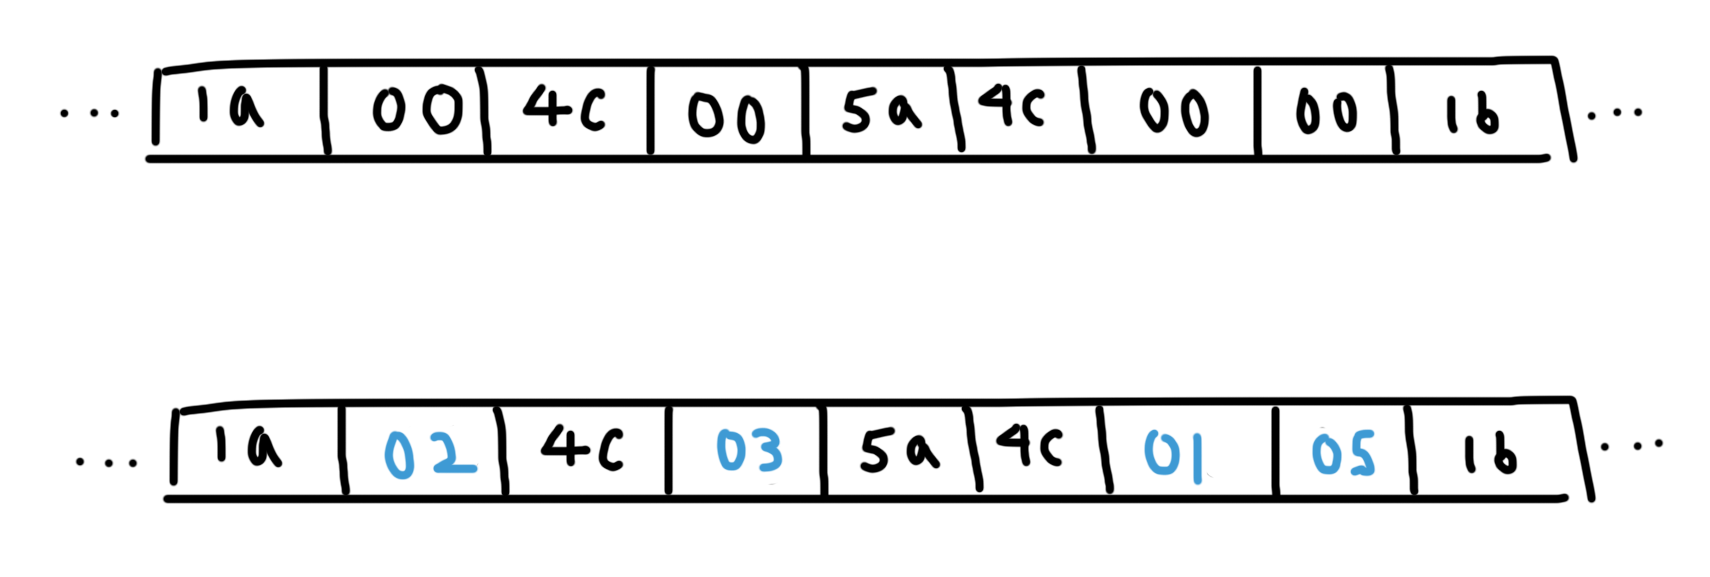 ... 1a 00 4c 00 5a 4c 00 00 1b ...
... 1a 02 4c 03 5a 4c 01 05 1b ...